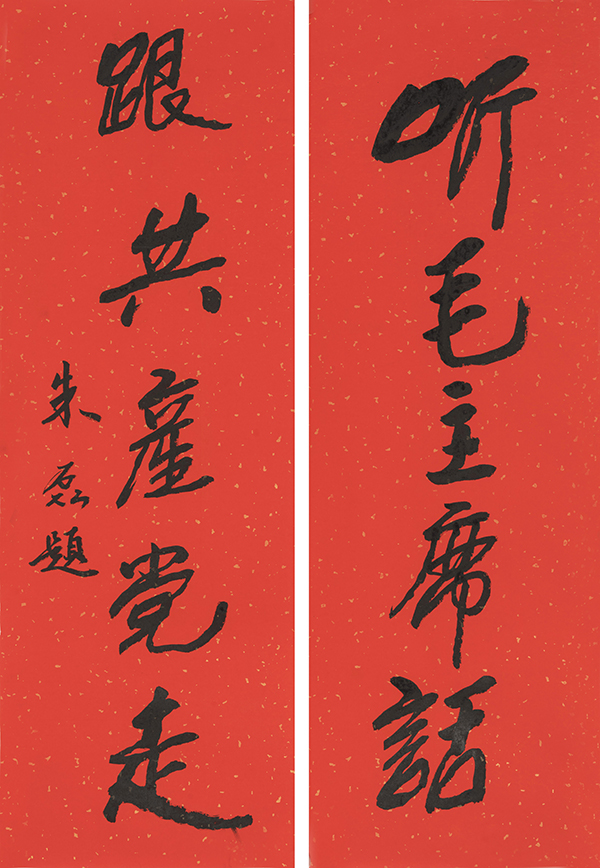 听毛主席話
跟共產党走
朱磊题